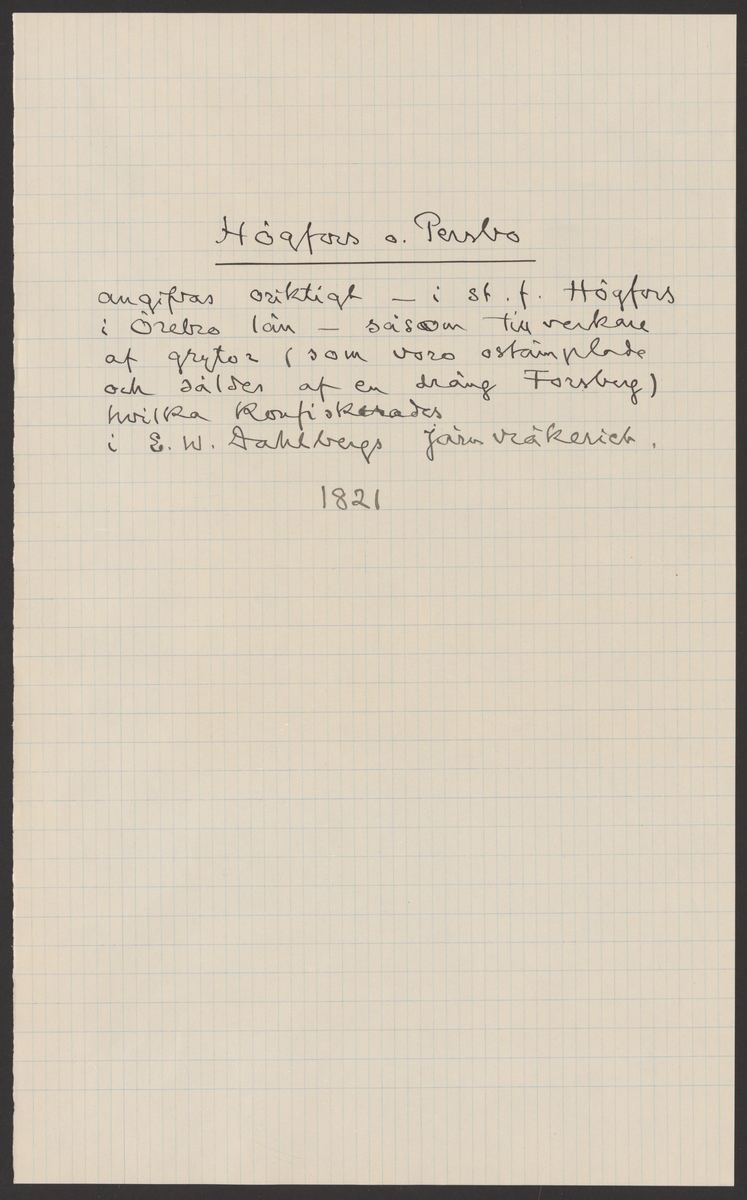 Högfors o. Persbo
angifvas oriktigt – i st. f. Högfors
i Örebro län – såsom tillverkare
af grytor (som voro ostämplade
och såldes af en dräng Forsberg)
hvilka konfiskerades
i E. W. Dahlbergs järnvräkerich.
1821